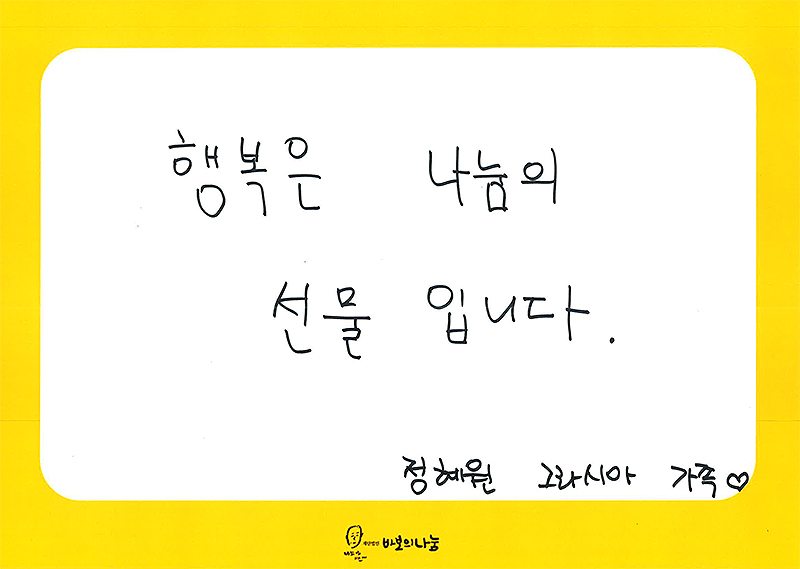 행복은 나눔의
선물 입니다.
정혜원 그라시아 가족♡
재단법인 바보의나눔